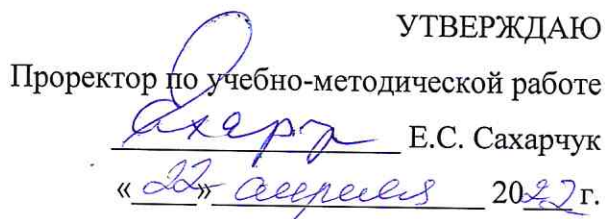 УТВЕРЖДАЮ
Проректор по учебно-методической работе
Е.С. Сахарчук
«22» апреля 2022 г.